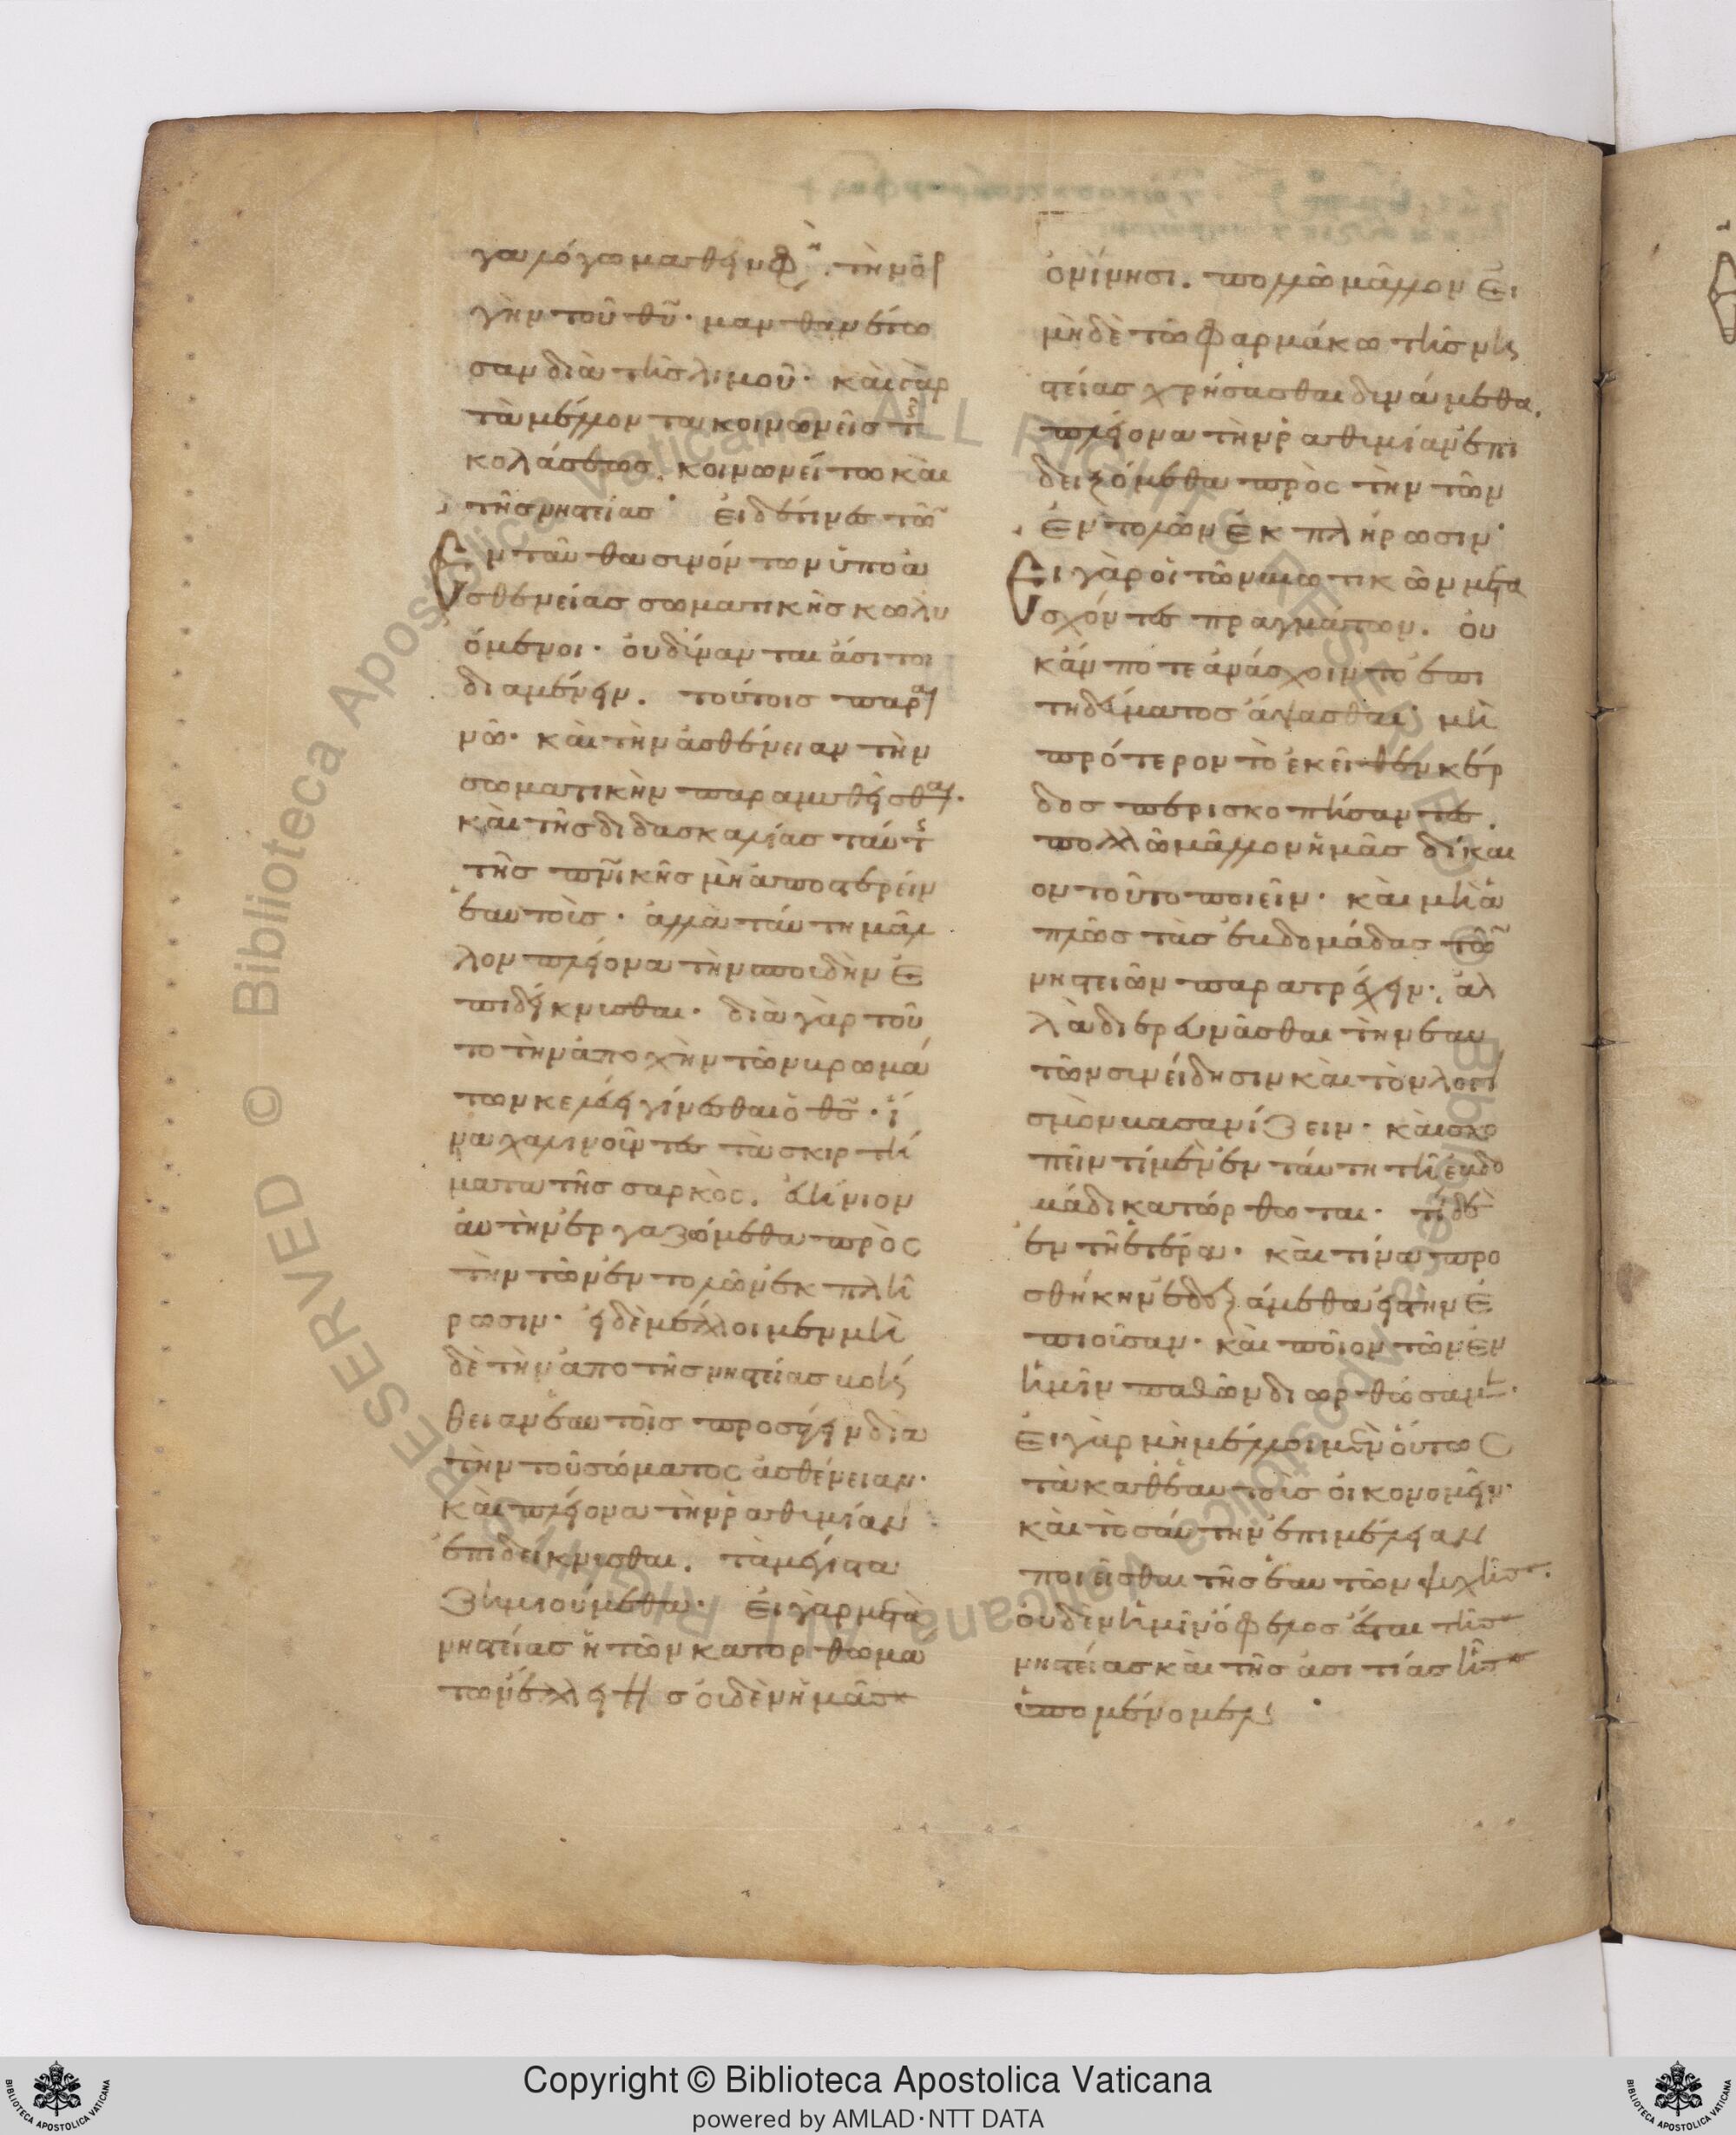 γα λόγω μαθεῖν
γὴν τοῦ θῦ· μανθανέτω
σαν διὰ τῆς λιμοῦ· καὶ γὰρ
τὰ μέλλοντα κοινωνεῖσ τ
κολάσεως. κοινωνείτω καὶ
τῆς νηστείας·
σθενείας σωματικῆς κωλυ
όμενοι· οὐ δύνανται ἄσιτοι
διαμένειν. τούτοις παραι
νῶ· καὶ τὴν ἀσθένειαν τὴν
σωματικὴν παραμυθεῖσθαι.
καὶ τῆς διδασκαλίας ταύτ
τῆς πνικῆς μὴ ἀποστερεῖν
ἑαυτοῖς· ἀλλὰ ταύτη μᾶλ
λον πλείονα τὴν σπουδὴν ἐ
πιδείκνυσθαι· διὰ γὰρ τοῦ
το τὴν ἀποχὴν τῶν βρωμά
των κελεύει γίνεσθαι ὁ θς· ἵ
να χαλινοῦντες τὰ σκιρτή
ματα τῆς σαρκός. εὐήνιον
αὐτὴν ἐργαζώμεθα πρὸς
τὴν τῶν ἐντολῶν ἐκπλή
ρωσιν· εἰ δὲ μέλλοιμεν μὴ
δὲ τὴν ἀπὸ τῆς νηστείας βοή
θειαν ἑαυτοῖς προσάγειν διὰ
τὴν τοῦ σώματος ἀσθένειαν·
καὶ πλείονα τὴν ῥαθυμίαν
ἐπιδείκνυσθαι. τὰ μέγιστα
ζημιούμεθα· εἰ γὰρ μετὰ
νηστείας ἢ τῶν κατορθωμά
των ἔλλειψις οὐδὲν ἡμᾶς
ὀνίνησι. πολλῶ μᾶλλον εἰ
μὴ δὲ τῶ φαρμάκω τῆς νη
στείας χρήσασθαι δυνάμεθα.
πλείονα τὴν ῥαθυμίαν ἐπι
δειξόμεθα πρὸς τὴν τῶν
ἐντολῶν ἐκπλήρωσιν·
Εἰ γὰρ οἱ τῶν βιωτικῶν μετα
σχόντες πραγμάτων. οὐ
κἄν ποτε ἀνάσχοιντο ἐπι
τηδεύματος ἅψασθαι· μὴ
πρότερον τὸ ἐκεῖθεν κέρ
δος περισκοπήσαντες.
πολλῶ μᾶλλον ἡμᾶς δίκαι
ον τοῦτο ποιεῖν· καὶ μὴ ἁ
πλῶς τὰς ἑβδομάδας τῶ
νηστειῶν παρατρέχειν· ἀλ
λὰ διερευνᾶσθαι τὴν ἑαυ
τῶν συνείδησιν καὶ τὸν λογι
σμὸν βασανίζειν· καὶ σκο
πεῖν τί μὲν ἐν ταύτη τῆ ἑβδο
μάδι κατώρθωται· τί δὲ
ἐν τῆ ἑτέρα· καὶ τίνα προ
σθήκην ἐδεξάμεθα εἰς τὴν ἐ
πιοῦσαν· καὶ ποῖον τῶν ἐν
ἡμῖν παθῶν διωρθώσαμεν·
Εἰ γὰρ μὴ μέλλοιμεν οὕτως
τὰ καθ ἑαυτοῖς οἰκονομεῖν·
καὶ τοσαύτην ἐπιμέλειαν
ποιεῖσθαι τῆς ἑαυτῶν ψυχῆς.
οὐδὲν ἡμῖν ὄφελος ἔσται τῆς
νηστείας καὶ τῆς ἀσιτίας ἧς
ὑπομένομεν·